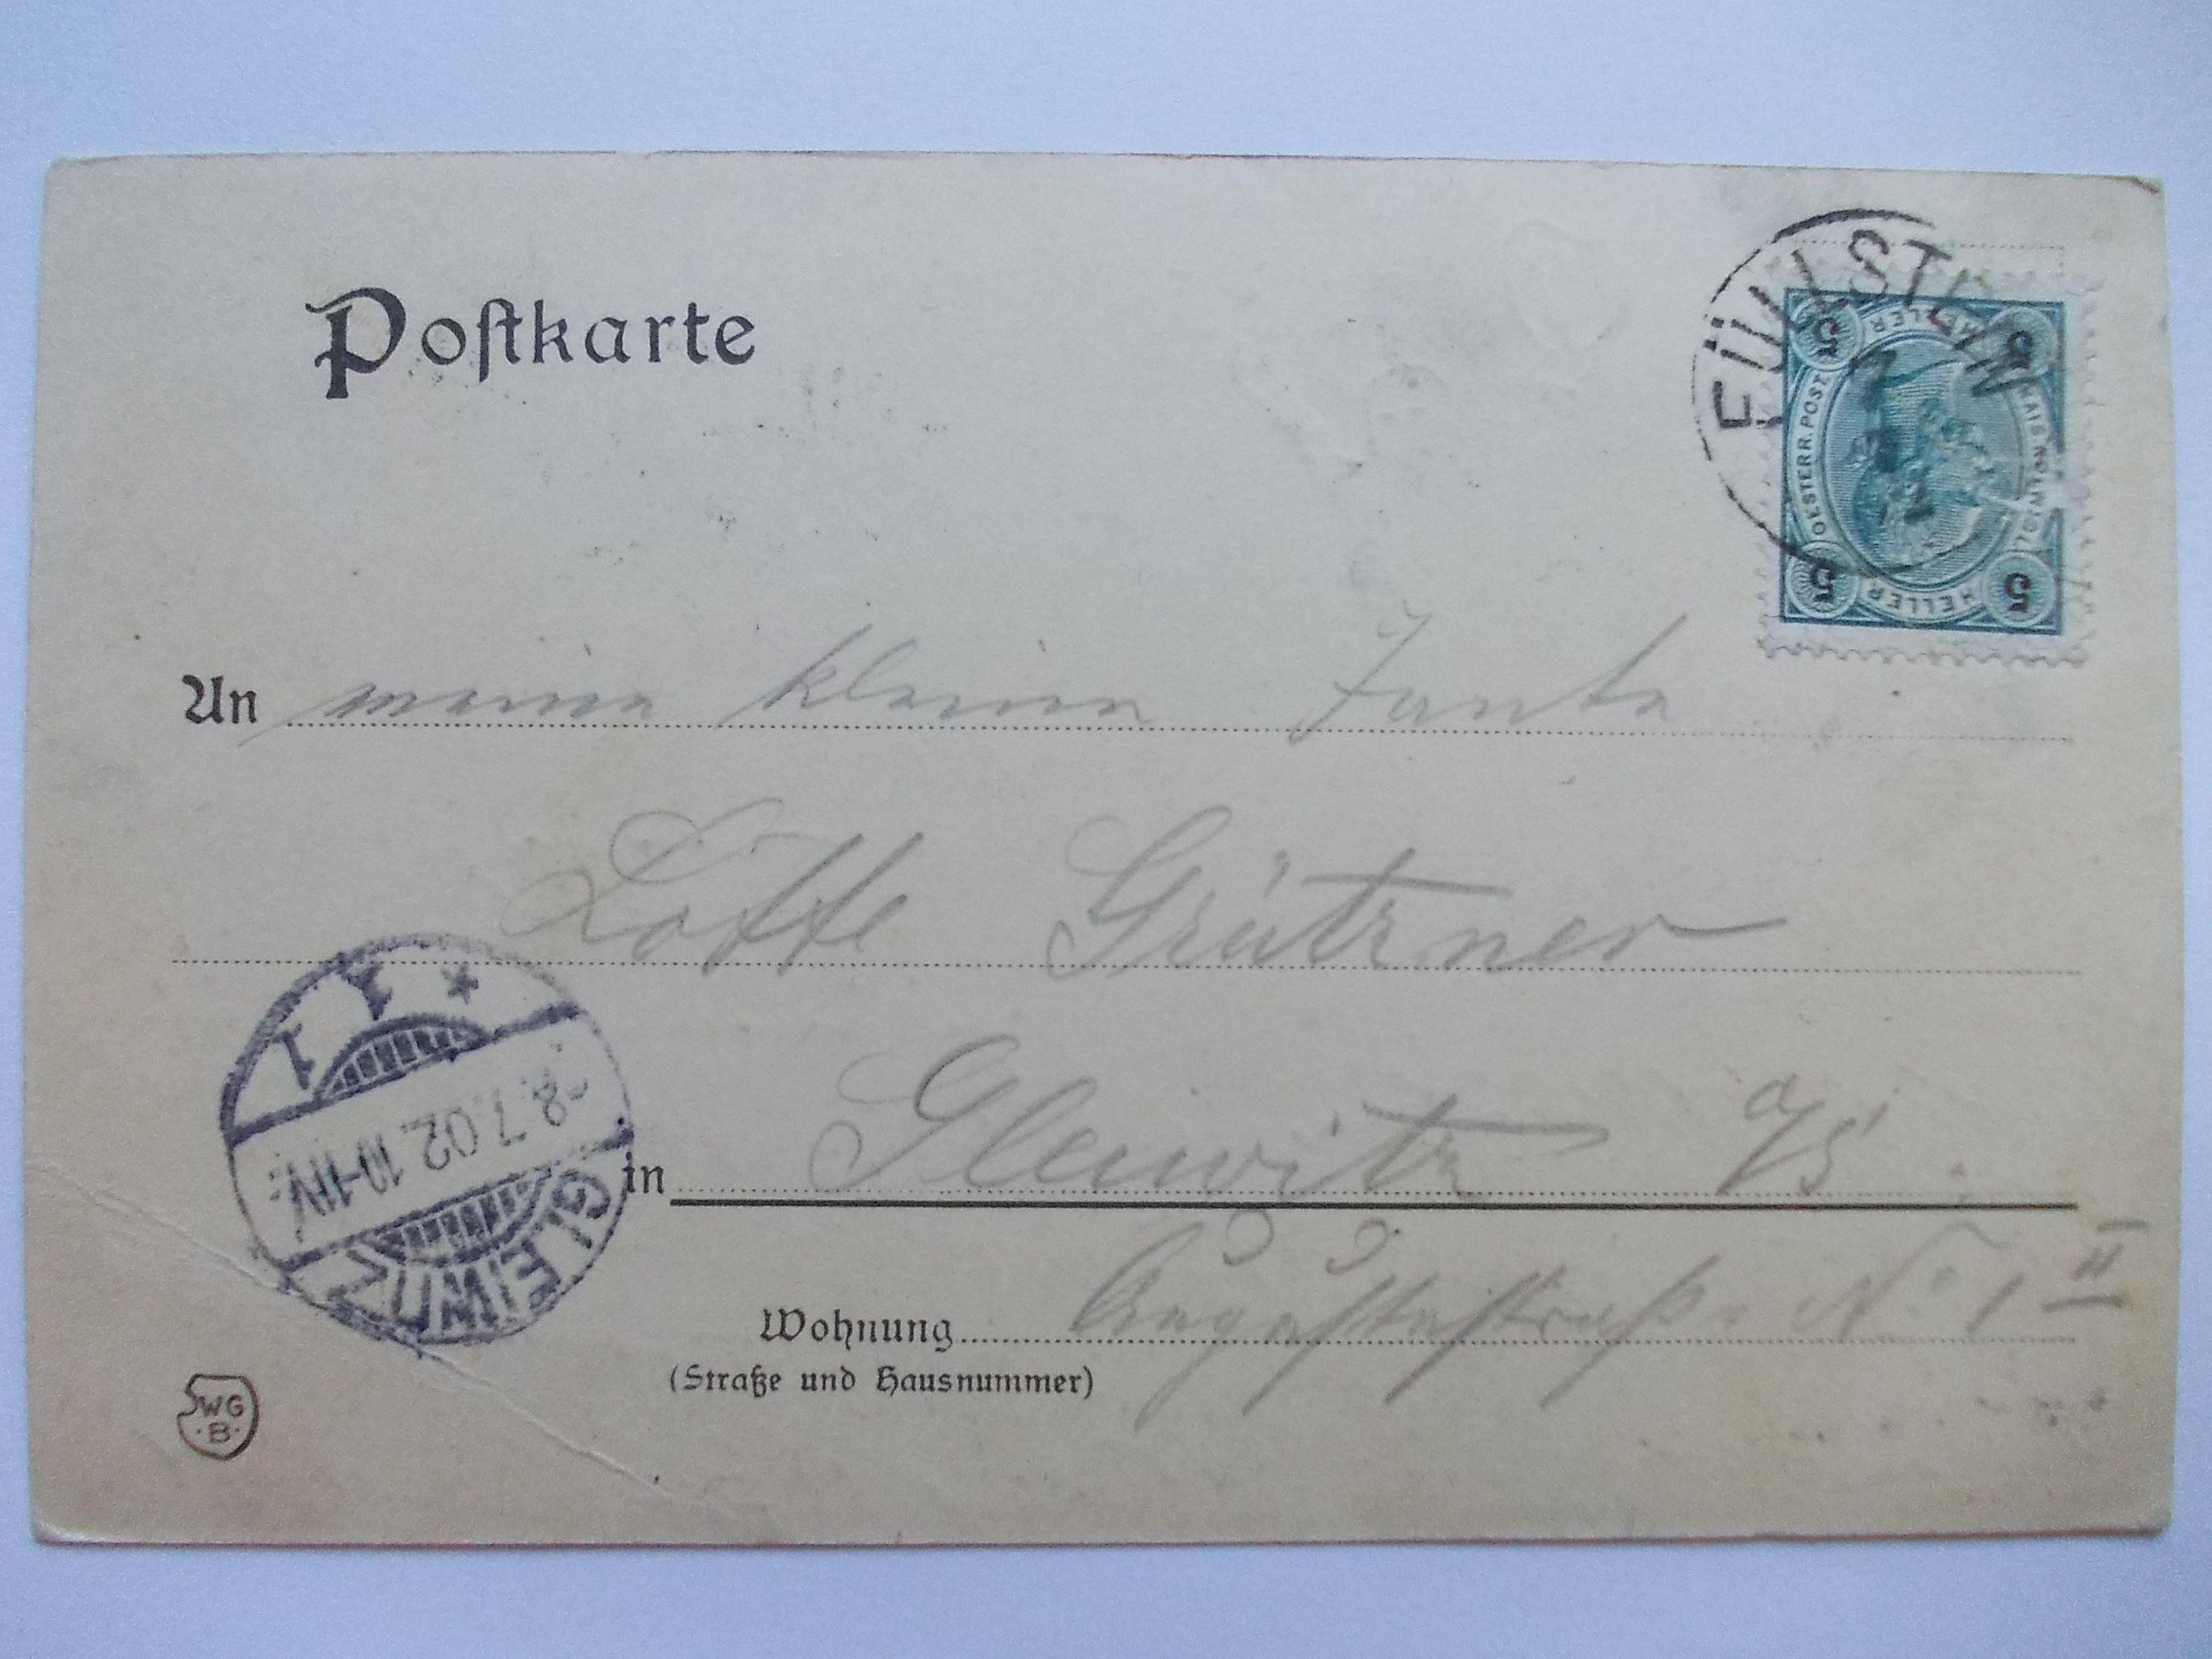 Postkarte
FÜLLSTEIN
5 HELLER 5
OESTERR. POST
KAIS. KOENIGL.
5 HELLER 5
An meine kleine Tante
Lotte Grützner
in Gleiwitz O/S.
Wohnung Augustastraße No 1 II
(Straße und Hausnummer)
GLEIWITZ
8.7.02. 10-11V.
* 1
WG
B